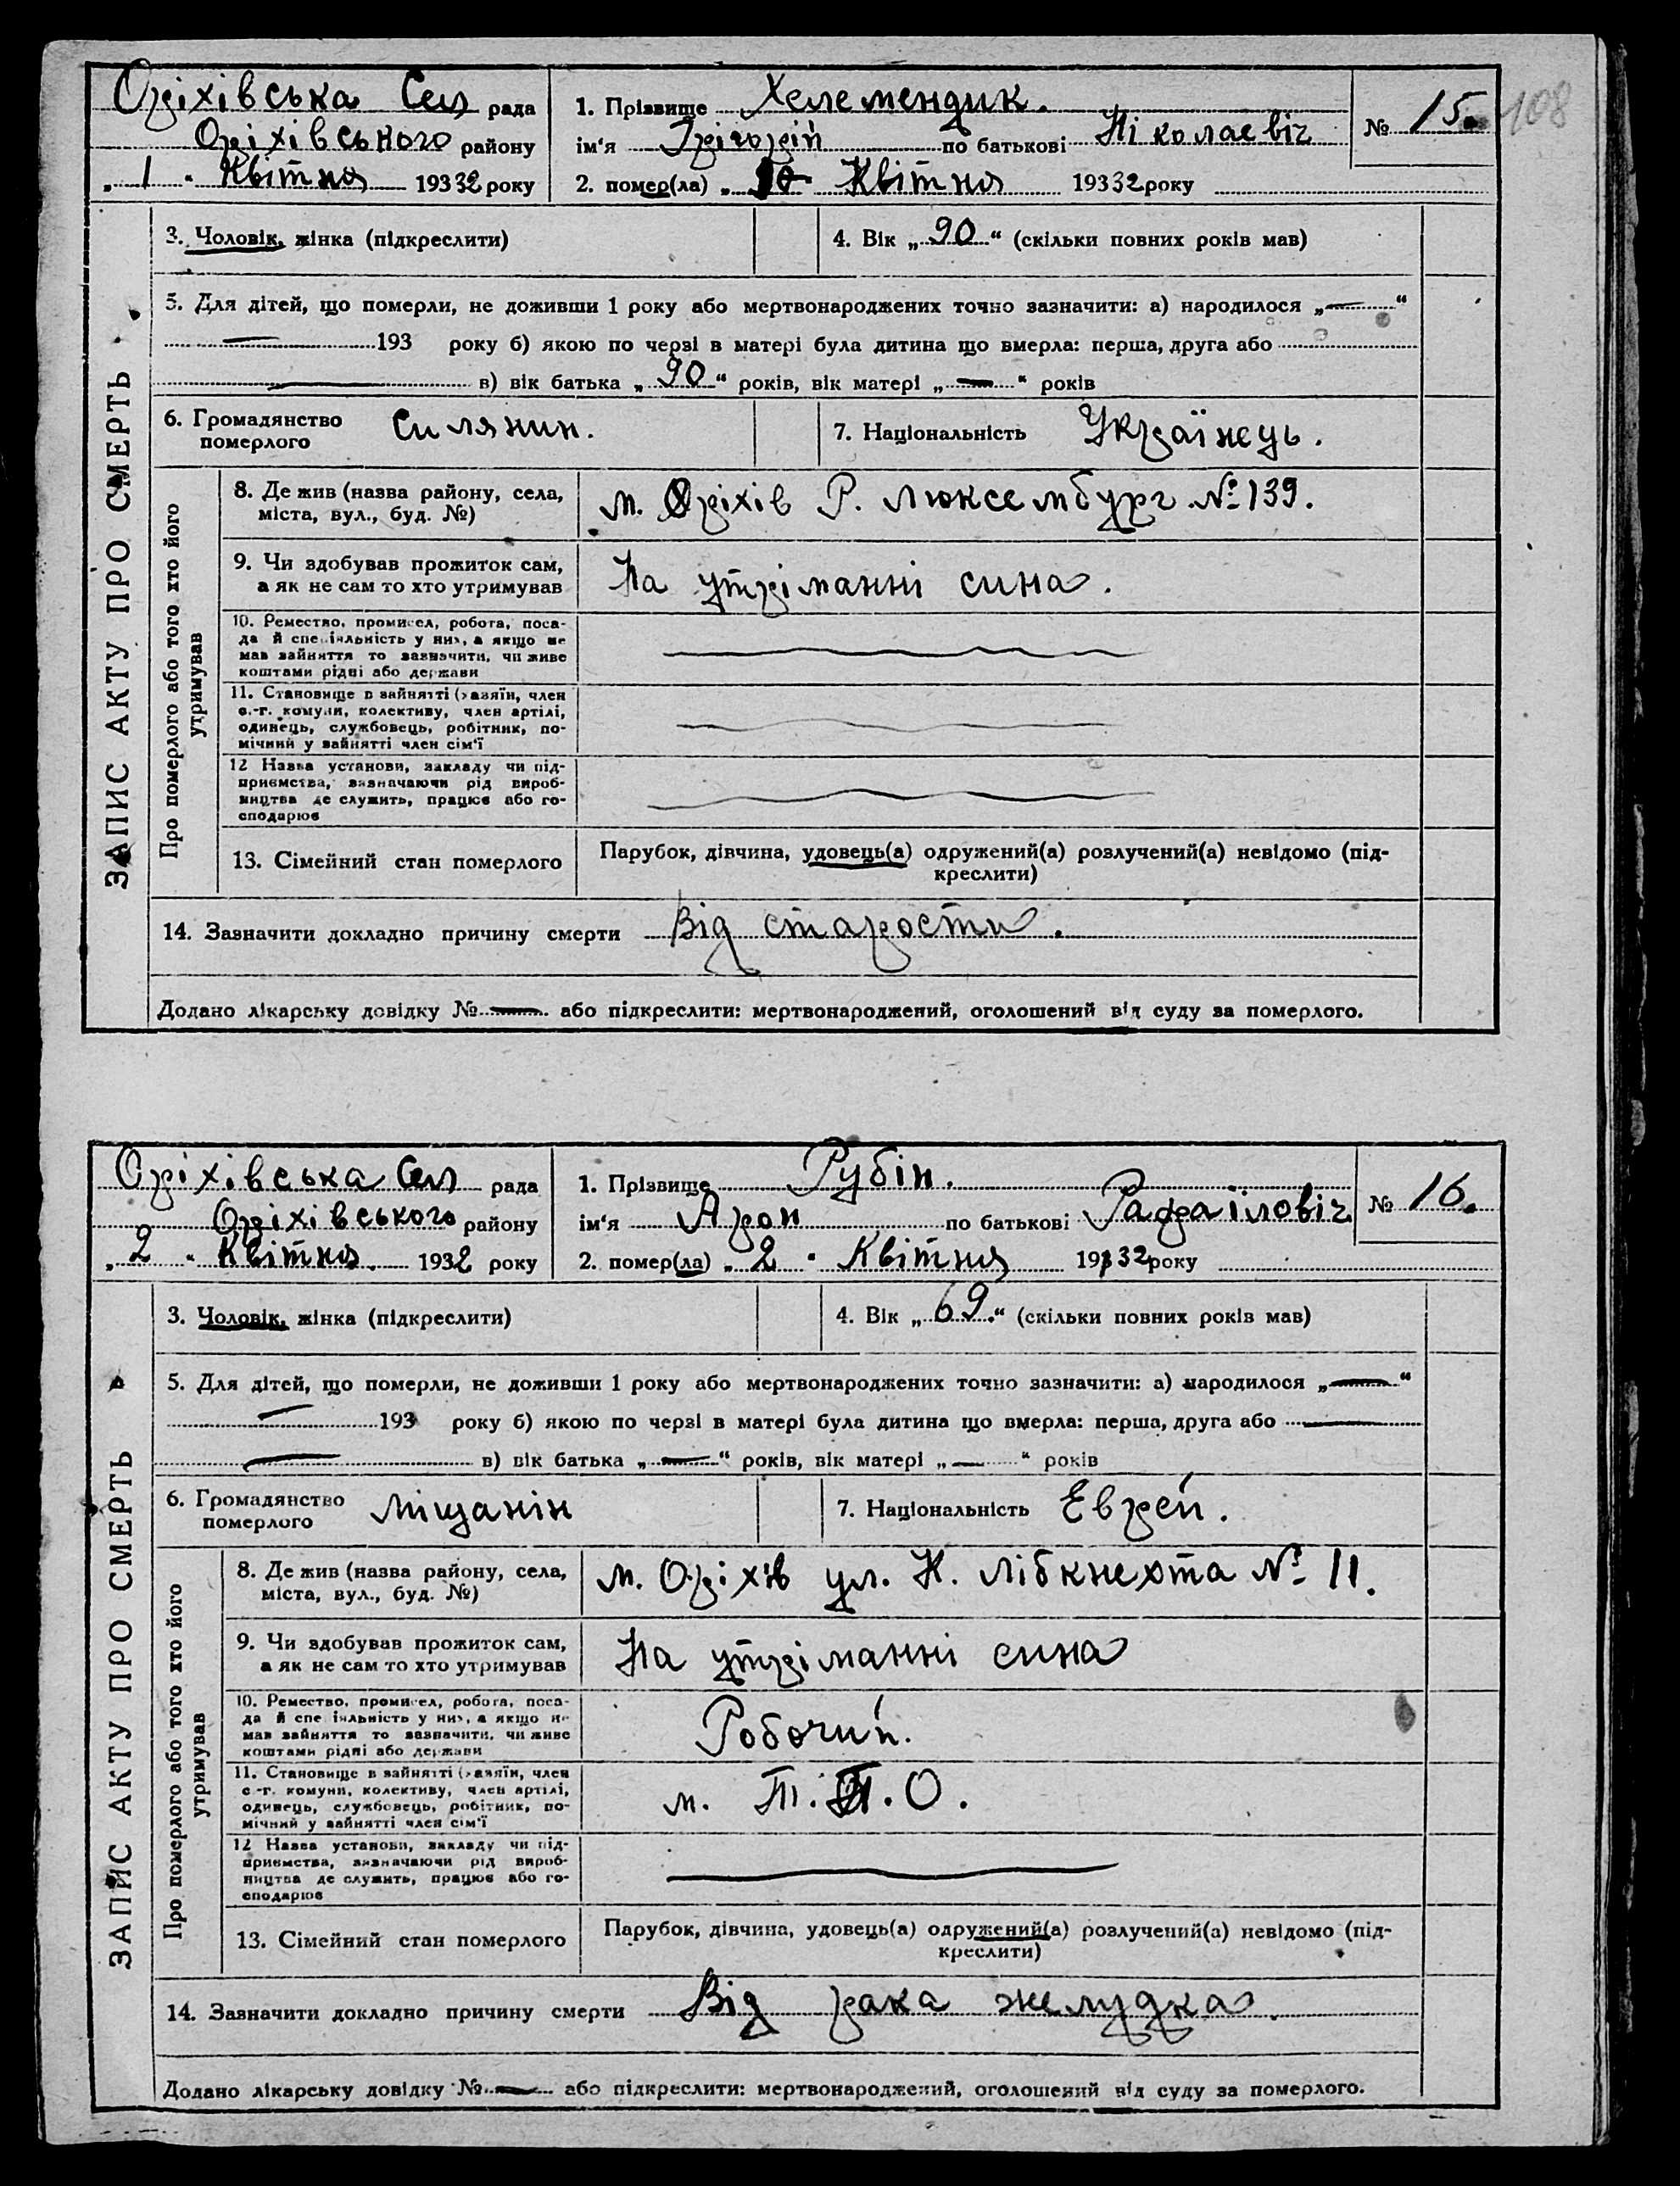 108
Оріхівська Сел рада
Оріхівського району
„ 1 " Квітня 19332 року
1. Прізвище Хелемендик.
ім'я Грігорій по батькові Ніколаевіч
№ 15.
2. помер(ла) „ " Квітня 19332 року
ЗАПИС АКТУ ПРО СМЕРТЬ
3. Чоловік, жінка (підкреслити)
4. Вік „90" (скільки повних років мав)
5. Для дітей, що померли, не доживши 1 року або мертвонароджених точно зазначити: а) народилося „—"
— 193 року б) якою по черзі в матері була дитина що вмерла: перша, друга або
— в) вік батька „90" років, вік матері „—" років
6. Громадянство
померлого
Силянин.
7. Національність Українець.
Про померлого або того хто його
утримував
8. Де жив (назва району, села,
міста, вул., буд. №)
м. Оріхів Р. Люксембург №139.
9. Чи здобував прожиток сам,
а як не сам то хто утримував
На утріманні сина.
10. Ремество, промисел, робота, поса-
да й спеціяльність у них, а якщо не
мав зайняття то зазначити, чи живе
коштами рідні або держави
11. Становище в зайнятті (хазяїн, член
с.-г. комуни, колективу, член артілі,
одинець, службовець, робітник, по-
мічний у зайнятті член сім'ї
12 Назва установи, закладу чи під-
приємства, зазначаючи рід вироб-
ництва де служить, працює або го-
сподарює
13. Сімейний стан померлого
Парубок, дівчина, удовець(а) одружений(а) розлучений(а) невідомо (під-
креслити)
14. Зазначити докладно причину смерти Від старости.
Додано лікарську довідку №— або підкреслити: мертвонароджений, оголошений від суду за померлого.
Оріхівська Сел рада
Оріхівського району
„ 2 " Квітня. 1932 року
1. Прізвище Рубін.
ім'я Арон по батькові Рафаіловіч
№ 16.
2. помер(ла) „ 2 " Квітня 19332 року
ЗАПИС АКТУ ПРО СМЕРТЬ
3. Чоловік, жінка (підкреслити)
4. Вік „69." (скільки повних років мав)
5. Для дітей, що померли, не доживши 1 року або мертвонароджених точно зазначити: а) народилося „—"
— 193 року б) якою по черзі в матері була дитина що вмерла: перша, друга або —
— в) вік батька „—" років, вік матері „—" років
6. Громадянство
померлого
Міщанін
7. Національність Еврей.
Про померлого або того хто його
утримував
8. Де жив (назва району, села,
міста, вул., буд. №)
м. Оріхів ул. К. Лібкнехта № 11.
9. Чи здобував прожиток сам,
а як не сам то хто утримував
На утріманні сина
10. Ремество, промисел, робота, поса-
да й спеціяльність у них, а якщо не
мав зайняття то зазначити, чи живе
коштами рідні або держави
Робочий.
11. Становище в зайнятті (хазяїн, член
с.-г. комуни, колективу, член артілі,
одинець, службовець, робітник, по-
мічний у зайнятті член сім'ї
м. Т.П.О.
12 Назва установи, закладу чи під-
приємства, зазначаючи рід вироб-
ництва де служить, працює або го-
сподарює
13. Сімейний стан померлого
Парубок, дівчина, удовець(а) одружений(а) розлучений(а) невідомо (під-
креслити)
14. Зазначити докладно причину смерти Від рака желудка.
Додано лікарську довідку №— або підкреслити: мертвонароджений, оголошений від суду за померлого.